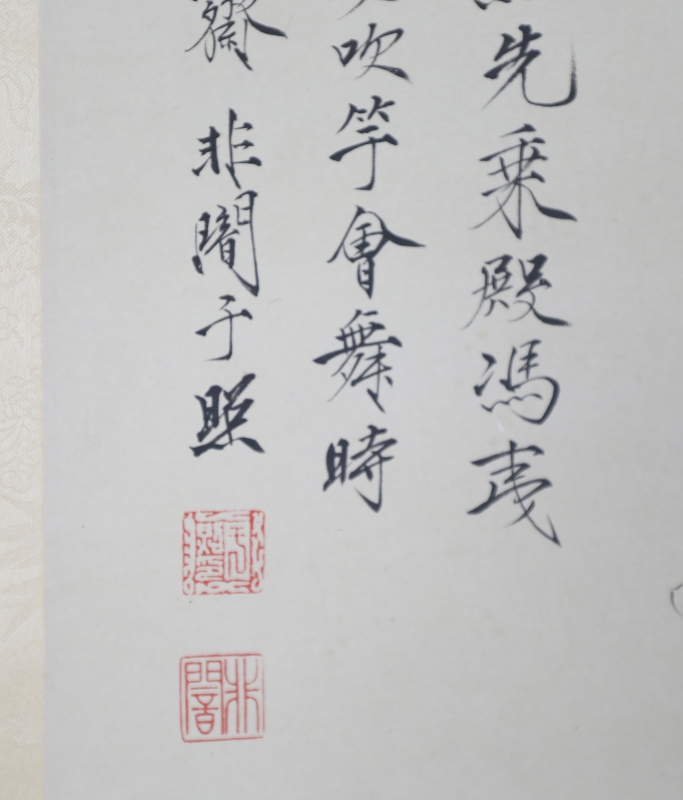 先乗殿馮夷
吹竽會舞時
齋 非闇于照
非闇